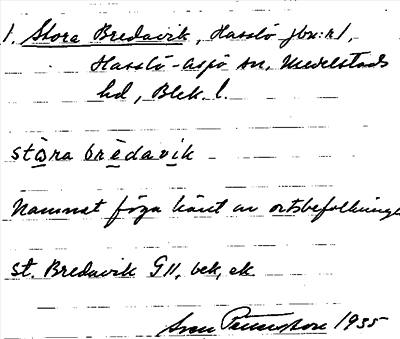 1. Stora Bredavik, Hasslö jbnr 1,
Hasslö-Aspö sn, Medelstads
hd, Blek. l.
stòra brèdavik
Namnet föga känt av ortsbefolkningen
St. Bredavik GII, bek, ek.
Sven 1935